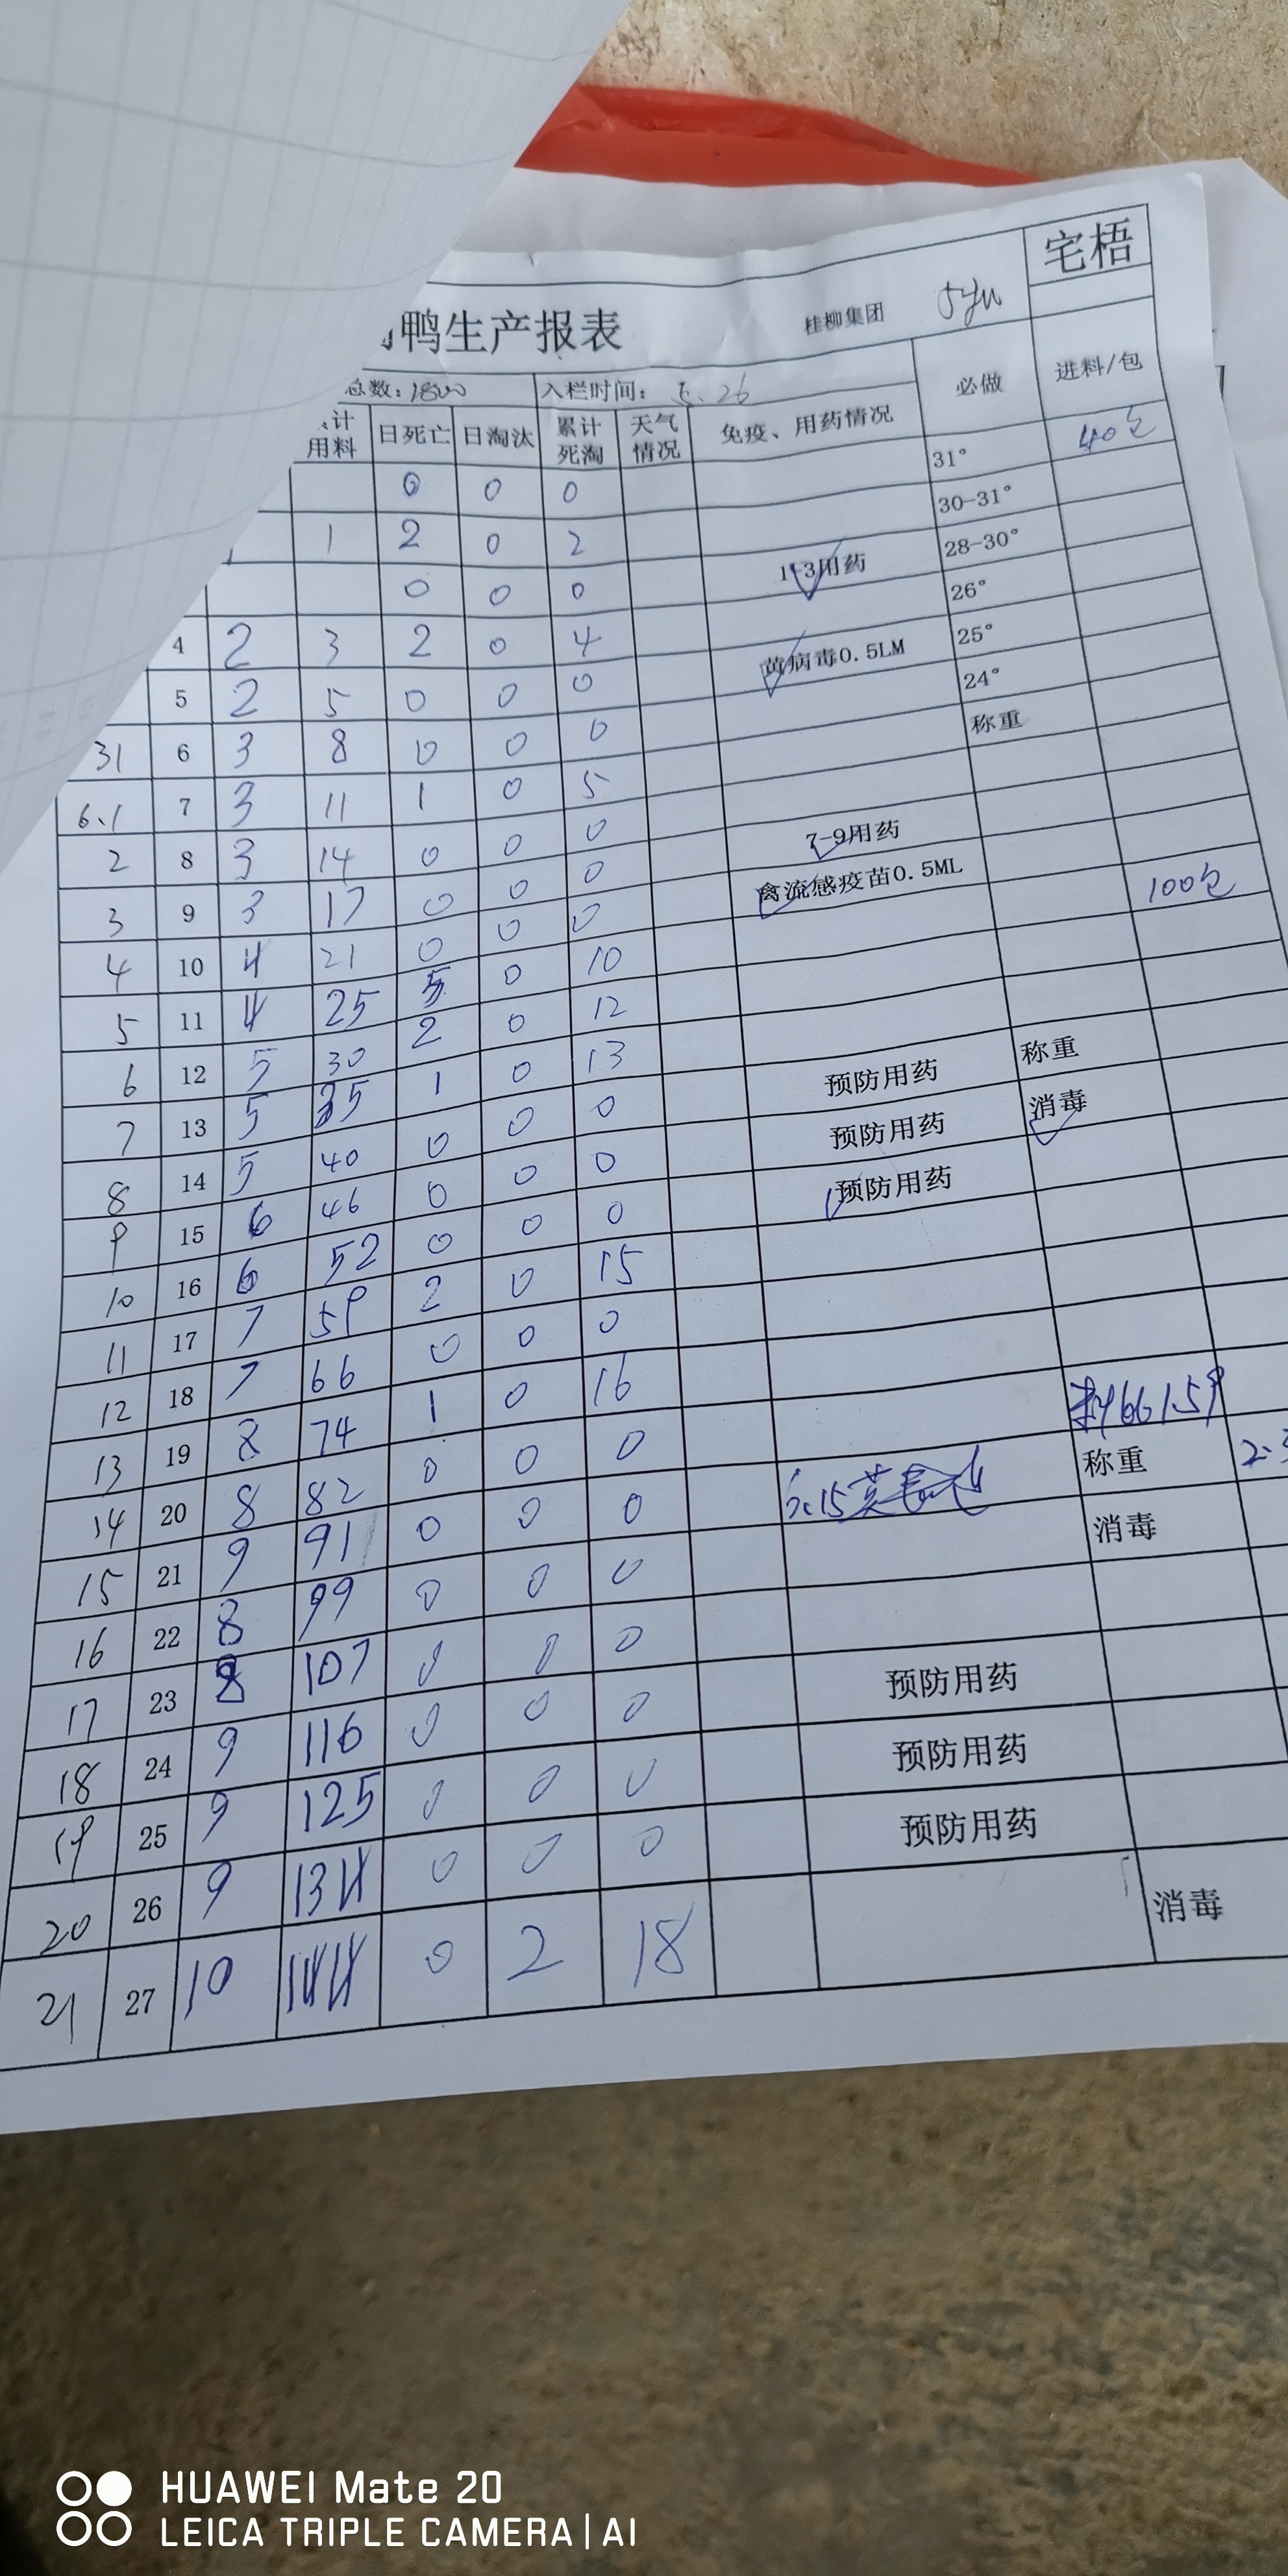 宅梧
鸭生产报表 桂柳集团
总数:1800 入栏时间: 5.26 必做 进料/包
计用料 日死亡 日淘汰 累计死淘 天气情况 免疫、用药情况
0 0 0 31° 40包
1 2 0 2 30-31°
0 0 0 1-3用药 28-30°
4 2 3 2 0 4 26°
5 2 5 0 0 0 黄病毒0.5LM 25°
31 6 3 8 0 0 0 24°
6.1 7 3 11 1 0 5 称重
2 8 3 14 0 0 0 7-9用药
3 9 3 17 0 0 0 禽流感疫苗0.5ML
4 10 4 21 0 0 0 100包
5 11 4 25 5 0 10
6 12 5 30 2 0 12
7 13 5 35 1 0 13 预防用药 称重
8 14 5 40 0 0 0 预防用药 消毒
9 15 6 46 0 0 0 预防用药
10 16 6 52 0 0 0
11 17 7 59 2 0 15
12 18 7 66 0 0 0
13 19 8 74 1 0 16 料661.59
14 20 8 82 0 0 0 称重
15 21 9 91 0 0 0 消毒
16 22 8 99 0 0 0
17 23 8 107 0 0 0 预防用药
18 24 9 116 0 0 0 预防用药
19 25 9 125 0 0 0 预防用药
20 26 9 134 0 0 0
21 27 10 144 0 2 18 消毒
HUAWEI Mate 20
LEICA TRIPLE CAMERA | AI